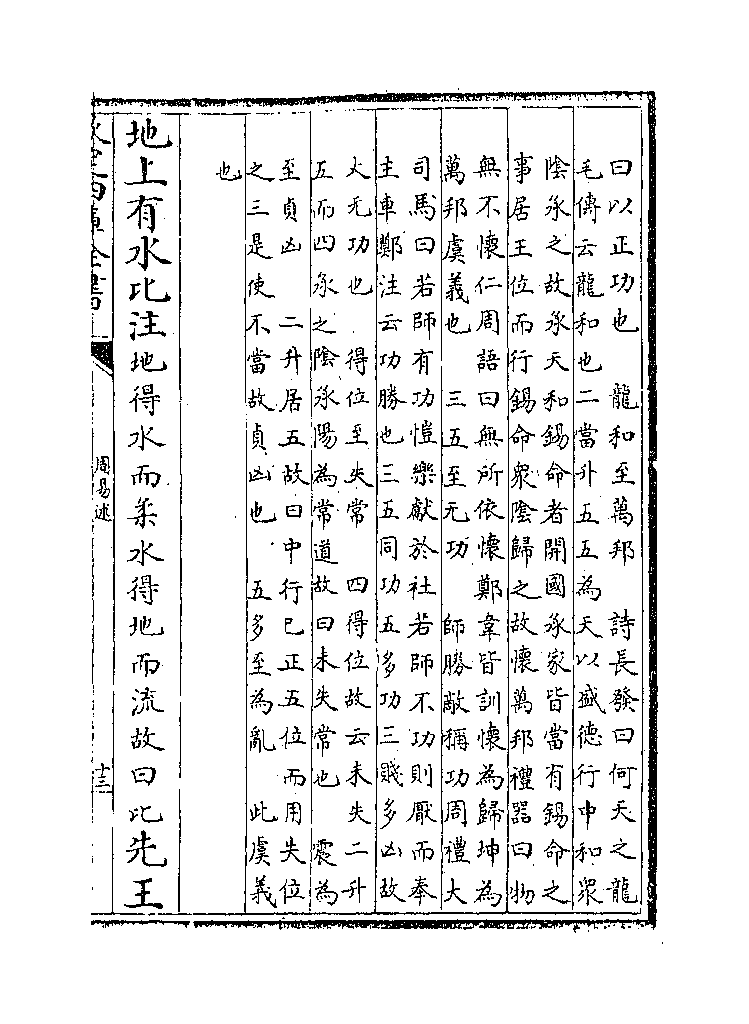 曰以正功也　龍和至萬邦　詩長發曰何天之龍
毛傳云龍和也二當升五五為天以盛德行中和衆
陰承之故承天和錫命者開國承家皆當有錫命之
事居王位而行錫命衆陰歸之故懷萬邦禮器曰物
無不懷仁周語曰無所依懷鄭韋皆訓懷為歸坤為
萬邦虞義也　三五至无功　師勝敵稱功周禮大
司馬曰若師有功愷樂獻於社若師不功則厭而奉
主車鄭注云功勝也三五同功五多功三賤多凶故
大无功也　得位至失常　四得位故云未失二升
五而四承之陰承陽為常道故曰未失常也　震為
至貞凶　二升居五故曰中行已正五位而用失位
之三是使不當故貞凶也　五多至為亂　此虞義
也
地上有水比注地得水而柔水得地而流故曰比先王
欽定四庫全書
周易述
十三